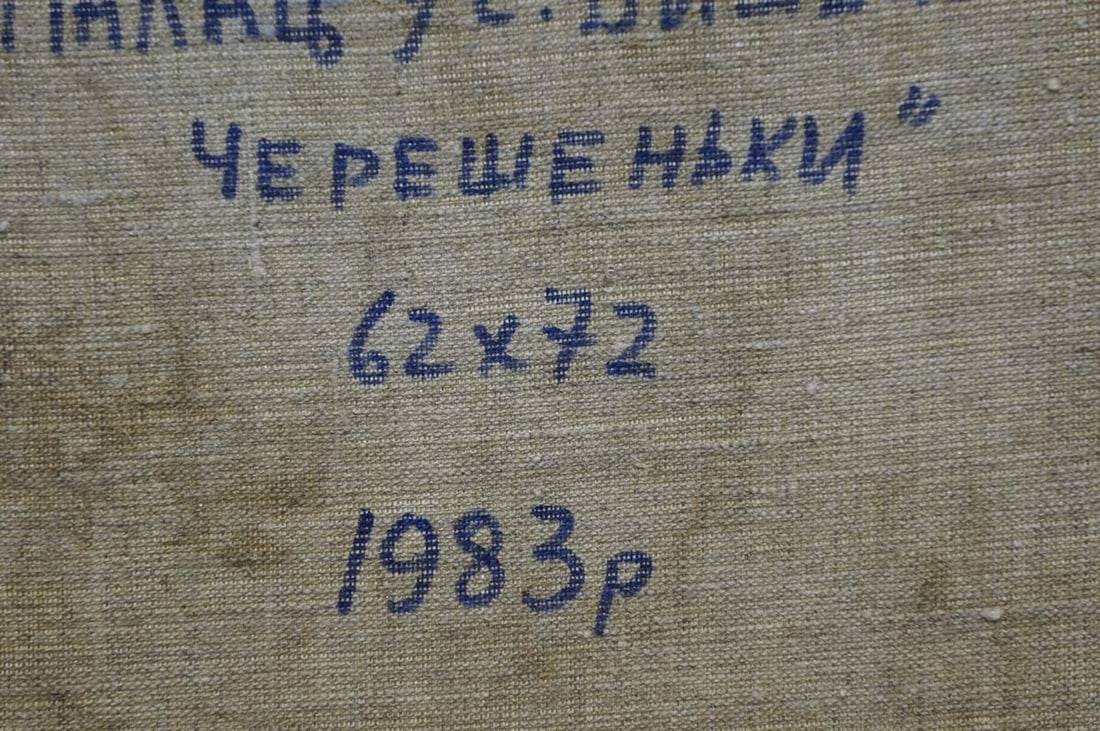 ПАЛАЦ У С.
ЧЕРЕШЕНЬКИ"
62х72
1983р